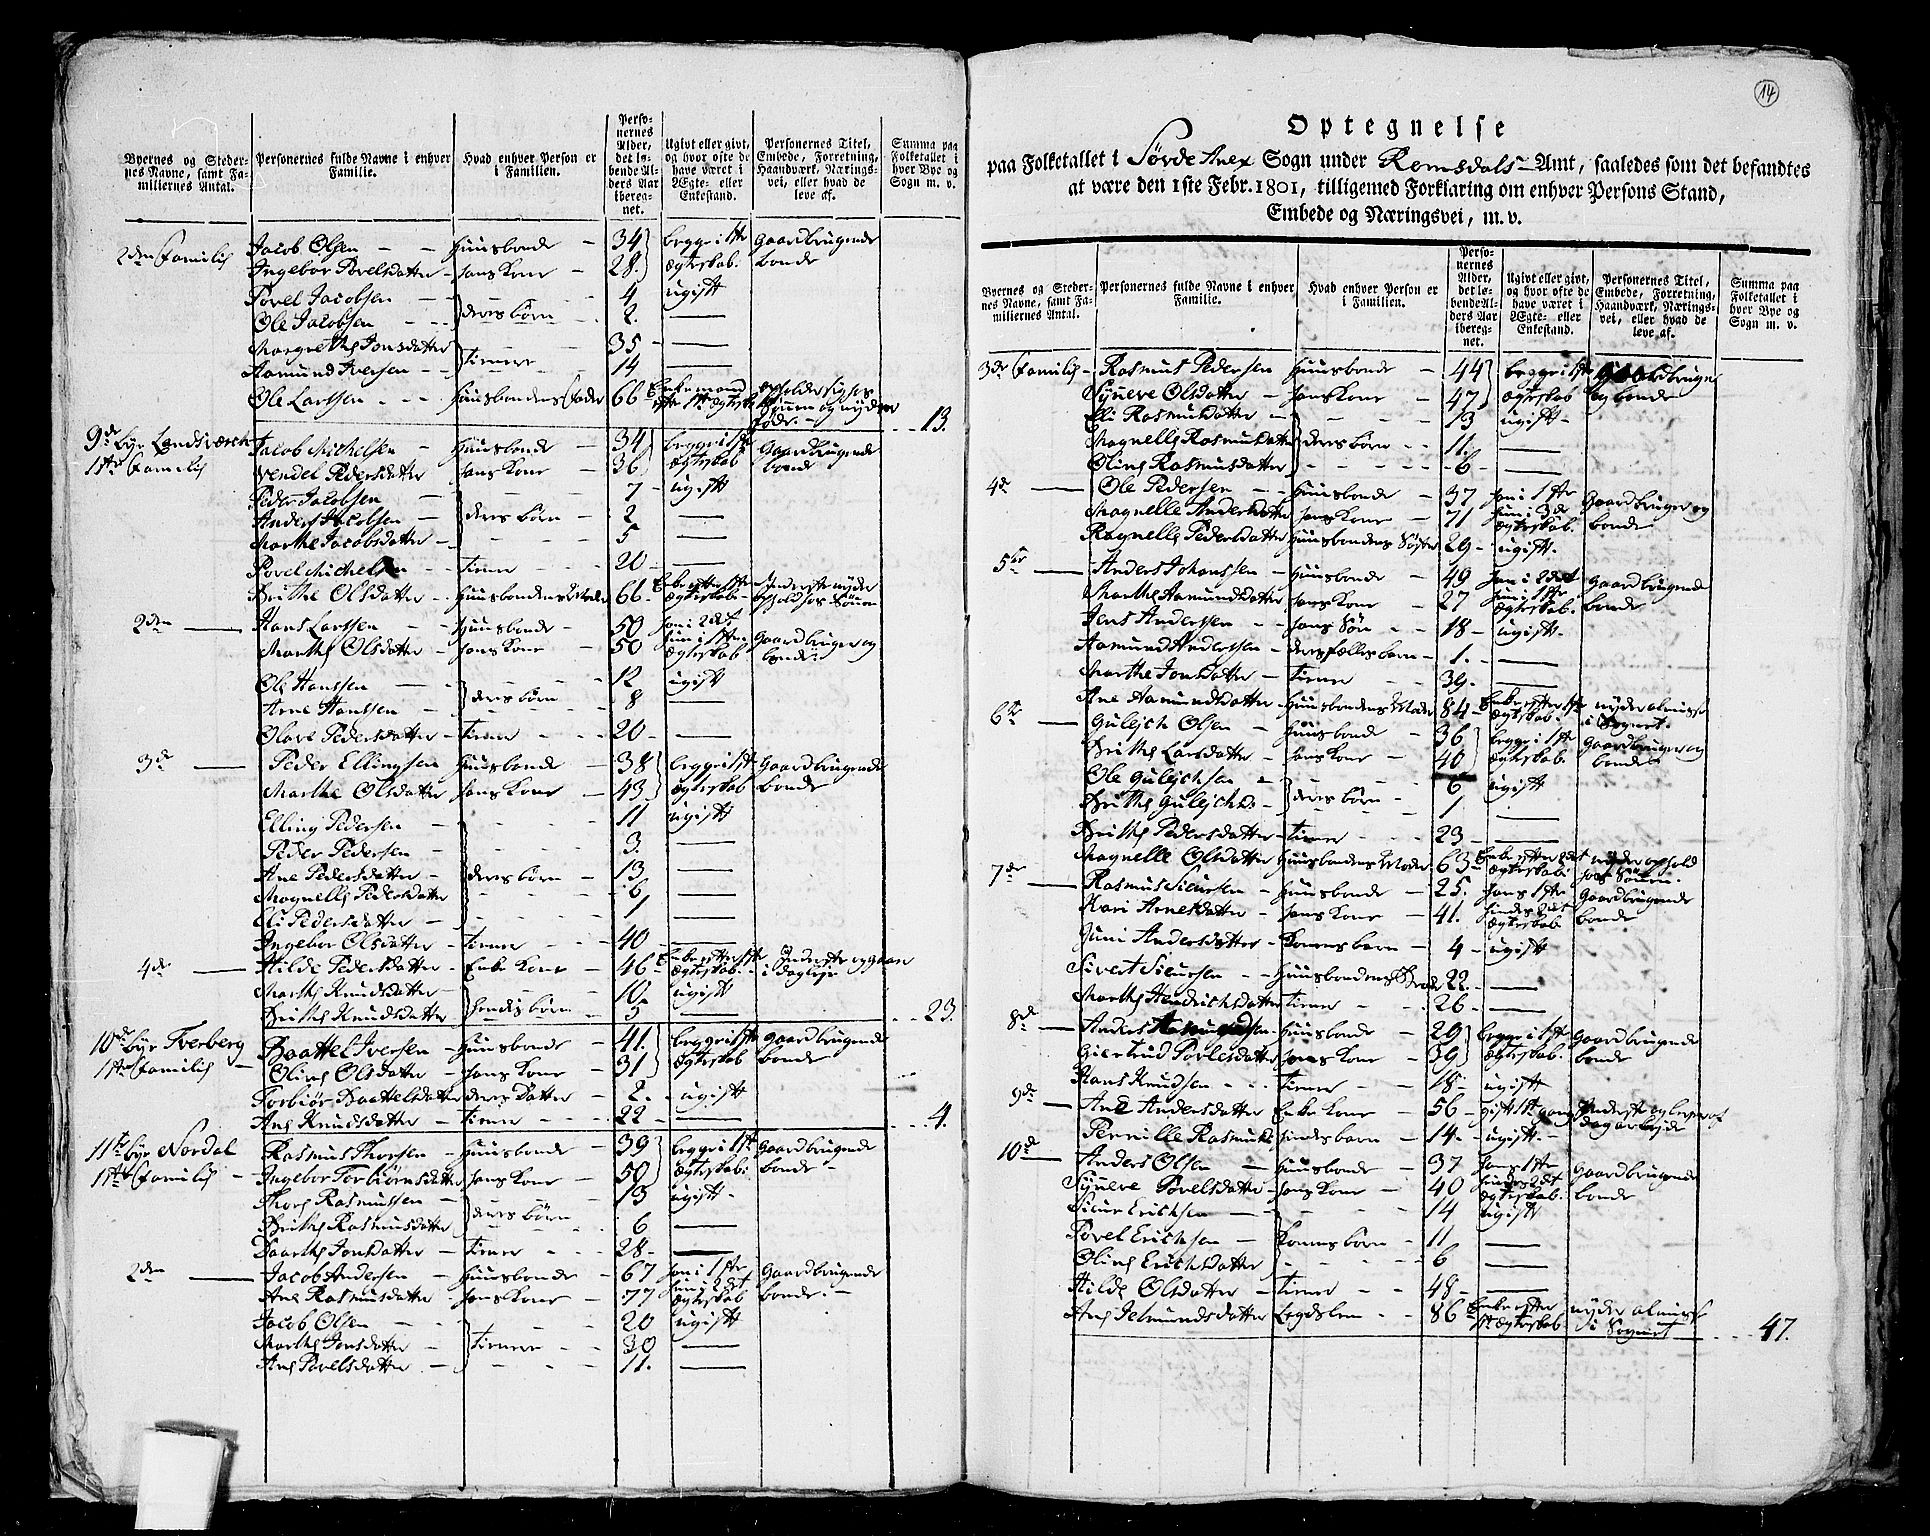 Byernes og Steder-
nes Navne, samt Fa-
miliernes Antal.
Personernes fulde Navne i enhver
Familie.
Hvad enhver Person er
i Familien.
Perso-
nernes
Alder,
det lø-
bende Al-
ders Aar
ibereg-
net.
Ugivt eller givt,
og hvor ofte de
have været i
Ægte- eller
Enkestand.
Personernes Titel,
Embede, Forretning,
Haandværk, Nærings-
vei, eller hvad de
leve af.
Summa paa
Folketallet i
hver Bye og
Sogn m. v.
2den Familie Jacob Olsen Huusbonde 34 begge i 1ste Gaardbrugende
Ingebor Povelsdatter hans Kone 28 Ægteskab. bonde
Povel Jacobsen 4 ugift
Ole Jacobsen deres børn 2
Margrethe Jonsdatter 35
Aamund Iversen tienere 14
Ole Larssen Huusbondens Fader 66 Enkemand
efter 1ste Ægteskab 13.
9de bye Landsværch Jacob Michelsen Huusbonde 34 begge i 1ste Gaardbrugende
1ste Familie Vendel Pedersdatter hans Kone 36 Ægteskab bonde
Peder Jacobsen 7 ugift
Anders Jacobsen deres børn 2
Marthe Jacobsdatter 5
Povel Michelsen tiener 20
Brithe Olsdatter Huusbondens Moder 66 Enke efter 1ste
Ægteskab
2den Hans Larssen Huusbonde 50 han i 2det
Marthe Olsdatter hans Kone 50 hun i 1ste Gaardbruger og
Ægteskab bonde
Ole Hanssen 12 ugift
Arne Hanssen deres børn 8
Olave Pedersdatter tiener 20
3de Peder Ellingsen Huusbonde 38 begge i 1ste Gaardbrugende
Marthe Olsdatter hans Kone 43 Ægteskab bonde
Elling Pedersen 11 ugift
Peder Pedersen 3.
Ane Pedersdatter deres børn 13
Magnelle Pedersdatter 6
Eli Pedersdatter 1
Ingebor Olsdatter tiener 40
4de Hilde Pedersdatter Enke Kone 46 Enke efter 1ste
Ægteskab
Marthe Knudsdatter 10. ugift
Brithe Knudsdatter hendes børn 5 23.
10de bye Tverberg Baattel Iversen Huusbonde 41. begge i 1ste Gaardbrugende
1ste Familie Oline Olsdatter hans Kone 31 Ægteskab bonde
Torbiør Baattelsdatter deres Datter 2. ugift
Ane Knudsdatter tiener 22 4.
11te bye Nordal Rasmus Thorsen Huusbonde 39 begge i 1ste Gaardbrugende
1ste Familie Ingebor Torbiørnsdatter hans Kone 50 Ægteskab bonde
Thore Rasmussen 13 ugift
Brithe Rasmusdatter deres børn 6
Baarthe Jonsdatter tiener 28
2den Jacob Andersen Huusbonde 67 han i 1ste Gaardbrugende
Ane Rasmusdatter hans Kone 77 hun i 2det bonde
Ægteskab
Jacob Olsen 20 ugift
Marthe Jonsdatter tienere 30
Ane Povelsdatter 11.
14
Optegnelse
paa Folketallet i Sørde Anex Sogn under Romsdals Amt, saaledes som det befandtes
at være den 1ste Febr. 1801, tilligemed Forklaring om enhver Persons Stand,
Embede og Næringsvei, m. v.
Byernes og Steder-
nes Navne, samt Fa-
miliernes Antal.
Personernes fulde Navne i enhver
Familie.
Hvad enhver Person er
i Familien.
Perso-
nernes
Alder,
det lø-
bende Al-
ders Aar
ibereg-
net.
Ugivt eller givt,
og hvor ofte de
have været i
Ægte- eller
Enkestand.
Personernes Titel,
Embede, Forretning,
Haandværk, Nærings-
vei, eller hvad de
leve af.
Summa paa
Folketallet i
hver Bye og
Sogn m. v.
3de Familie Rasmus Pedersen Huusbonde 44 begge i 1ste Gaardbruger
Synneve Olsdatter hans Kone 47 Ægteskab og bonde
Eli Rasmusdatter 13 ugift
Magnelle Rasmusdatter deres børn 11.
Oline Rasmusdatter 6
4de Ole Pedersen Huusbonde 37 han i 1ste Gaardbruger og
Magnelle Andersdatter hans Kone 71 hun i 3de bonde
Ægteskab.
Ragnelle Pedersdatter Huusbondens Søster 29 ugift
5te Anders Johanssen Huusbonde 49 han i 2det Gaardbrugende
Marthe Aamundsdatter hans Kone 27 hun i 1ste bonde
Ægteskab.
Jens Anderssen hans Søn 18 ugift
Aamund Anderssen deres fælles barn 1.
Marthe Jonsdatter tiener 39.
Ane Aamundsdatter Huusbondens Moder 84 Enke efter 1ste nyder almisse
Ægteskab. i Sognet.
6te Gulejch Olsen Huusbonde 36 begge i 1ste Gaardbruger og
Brithe Larsdatter hans Kone 40 Ægteskab. bonde
Ole Gulejchsen 6 ugift
Brithe Gulejchsd. deres børn 1
Brithe Pedersdatter tiener 23
Magnelle Olsdatter Huusbondens Moder 63 Enke efter 2det nyder ophold
Ægteskab hos Sønnen.
7de Rasmus Siurssen Huusbonde 25. hans 1ste Gaardbrugende
Kari Arnesdatter hans Kone 41. hindes 2det bonde
Ægteskab
Juni Andersdatter Konens barn 4 ugift
Sivert Siurssen Huusbondens Broder 22
Marthe Hendrichsdatter tiener 26
8de Anders Huusbonde 29 begge i 1ste Gaardbrugende
Giertrud Povlesdatter hans Kone 39 Ægteskab. bonde
Hans Knudsen tiener 18 ugift
9de Ane Andersdatter Enke Kone 56 gift 1ste gang Inderste og lever af
dagarbejde
Pernille Rasmusd. hindes barn 14 ugift
10de Anders Olsen Huusbonde 37 hans 1ste Gaardbrugende
Synneve Povelsdatter hans Kone 40 hindes 2det bonde
Ægteskab.
Siur Erichsen 14 ugift
Povel Erichsen Konens børn 11
Oline Erichsdatter 6
Hilde Olsdatter tiener 48
Ane Jelmundsdatter Legdslem 86 Enke efter nyder almisse
1ste Ægteskab i Sognet 47.